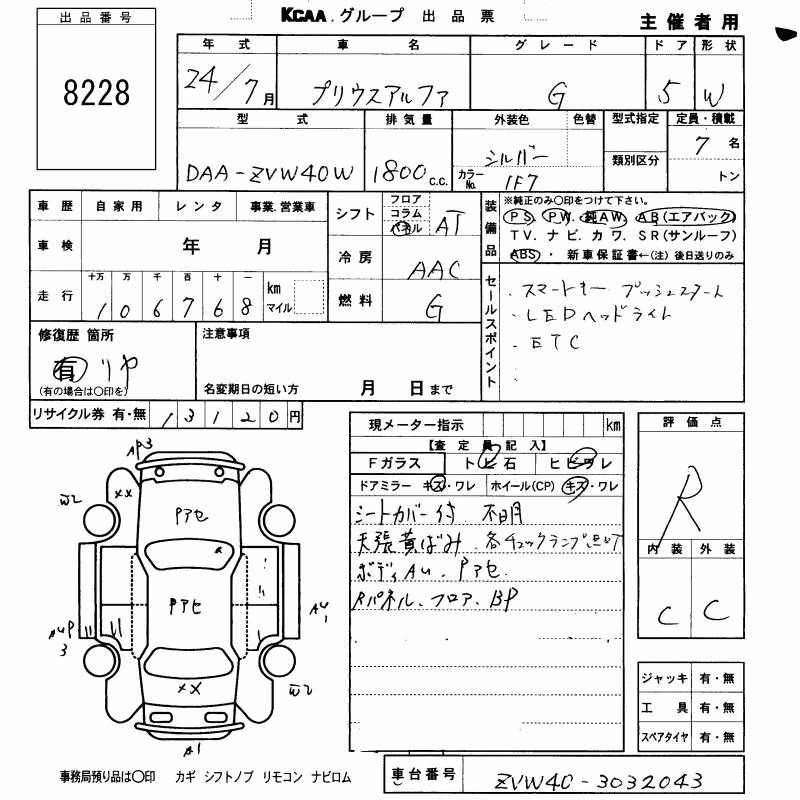 出品番号
8228
KCAA.グループ 出品票
主催者用
年式 車名 グレード ドア 形状
24/7月 プリウスアルファ G 5 W
型式 排気量 外装色 色替 型式指定 定員・積載
DAA-ZVW40W 1800c.c. シルバー 7名
カラーNo. 1F7 類別区分 トン
車歴 自家用 レンタ 事業.営業車
車検 年 月
十万 万 千 百 十 一
走行 1 0 6 7 6 8 km マイル
シフト フロア コラム パネル AT
冷房 AAC
燃料 G
装備品
※純正のみ○印をつけて下さい。
PS. PW. 純AW. AB(エアバック)
TV. ナビ. カワ. SR(サンルーフ)
ABS・ 新車保証書←(注) 後日送りのみ
セールスポイント
・スマートキー プッシュスタート
・LEDヘッドライト
・ETC
修復歴 箇所 注意事項
有 リヤ
(有の場合は○印を) 名変期日の短い方 月 日まで
リサイクル券 有・無 13120円
現メーター指示 km
【査定員記入】
Fガラス トビ石 ヒビワレ
ドアミラー キズ・ワレ ホイール(CP) キズ・ワレ
シートカバー付 不明
天張黄ばみ、各チェックランプ点灯
ボディAU、Pアセ
Rパネル、フロア、BP
評価点
R
内装 外装
C C
AP3
XX
W2
Pアセ
Pアセ
AU1
AUP3
XX
W2
A1
ジャッキ 有・無
工具 有・無
スペアタイヤ 有・無
事務局預り品は○印 カギ シフトノブ リモコン ナビロム
車台番号 ZVW40-3032043